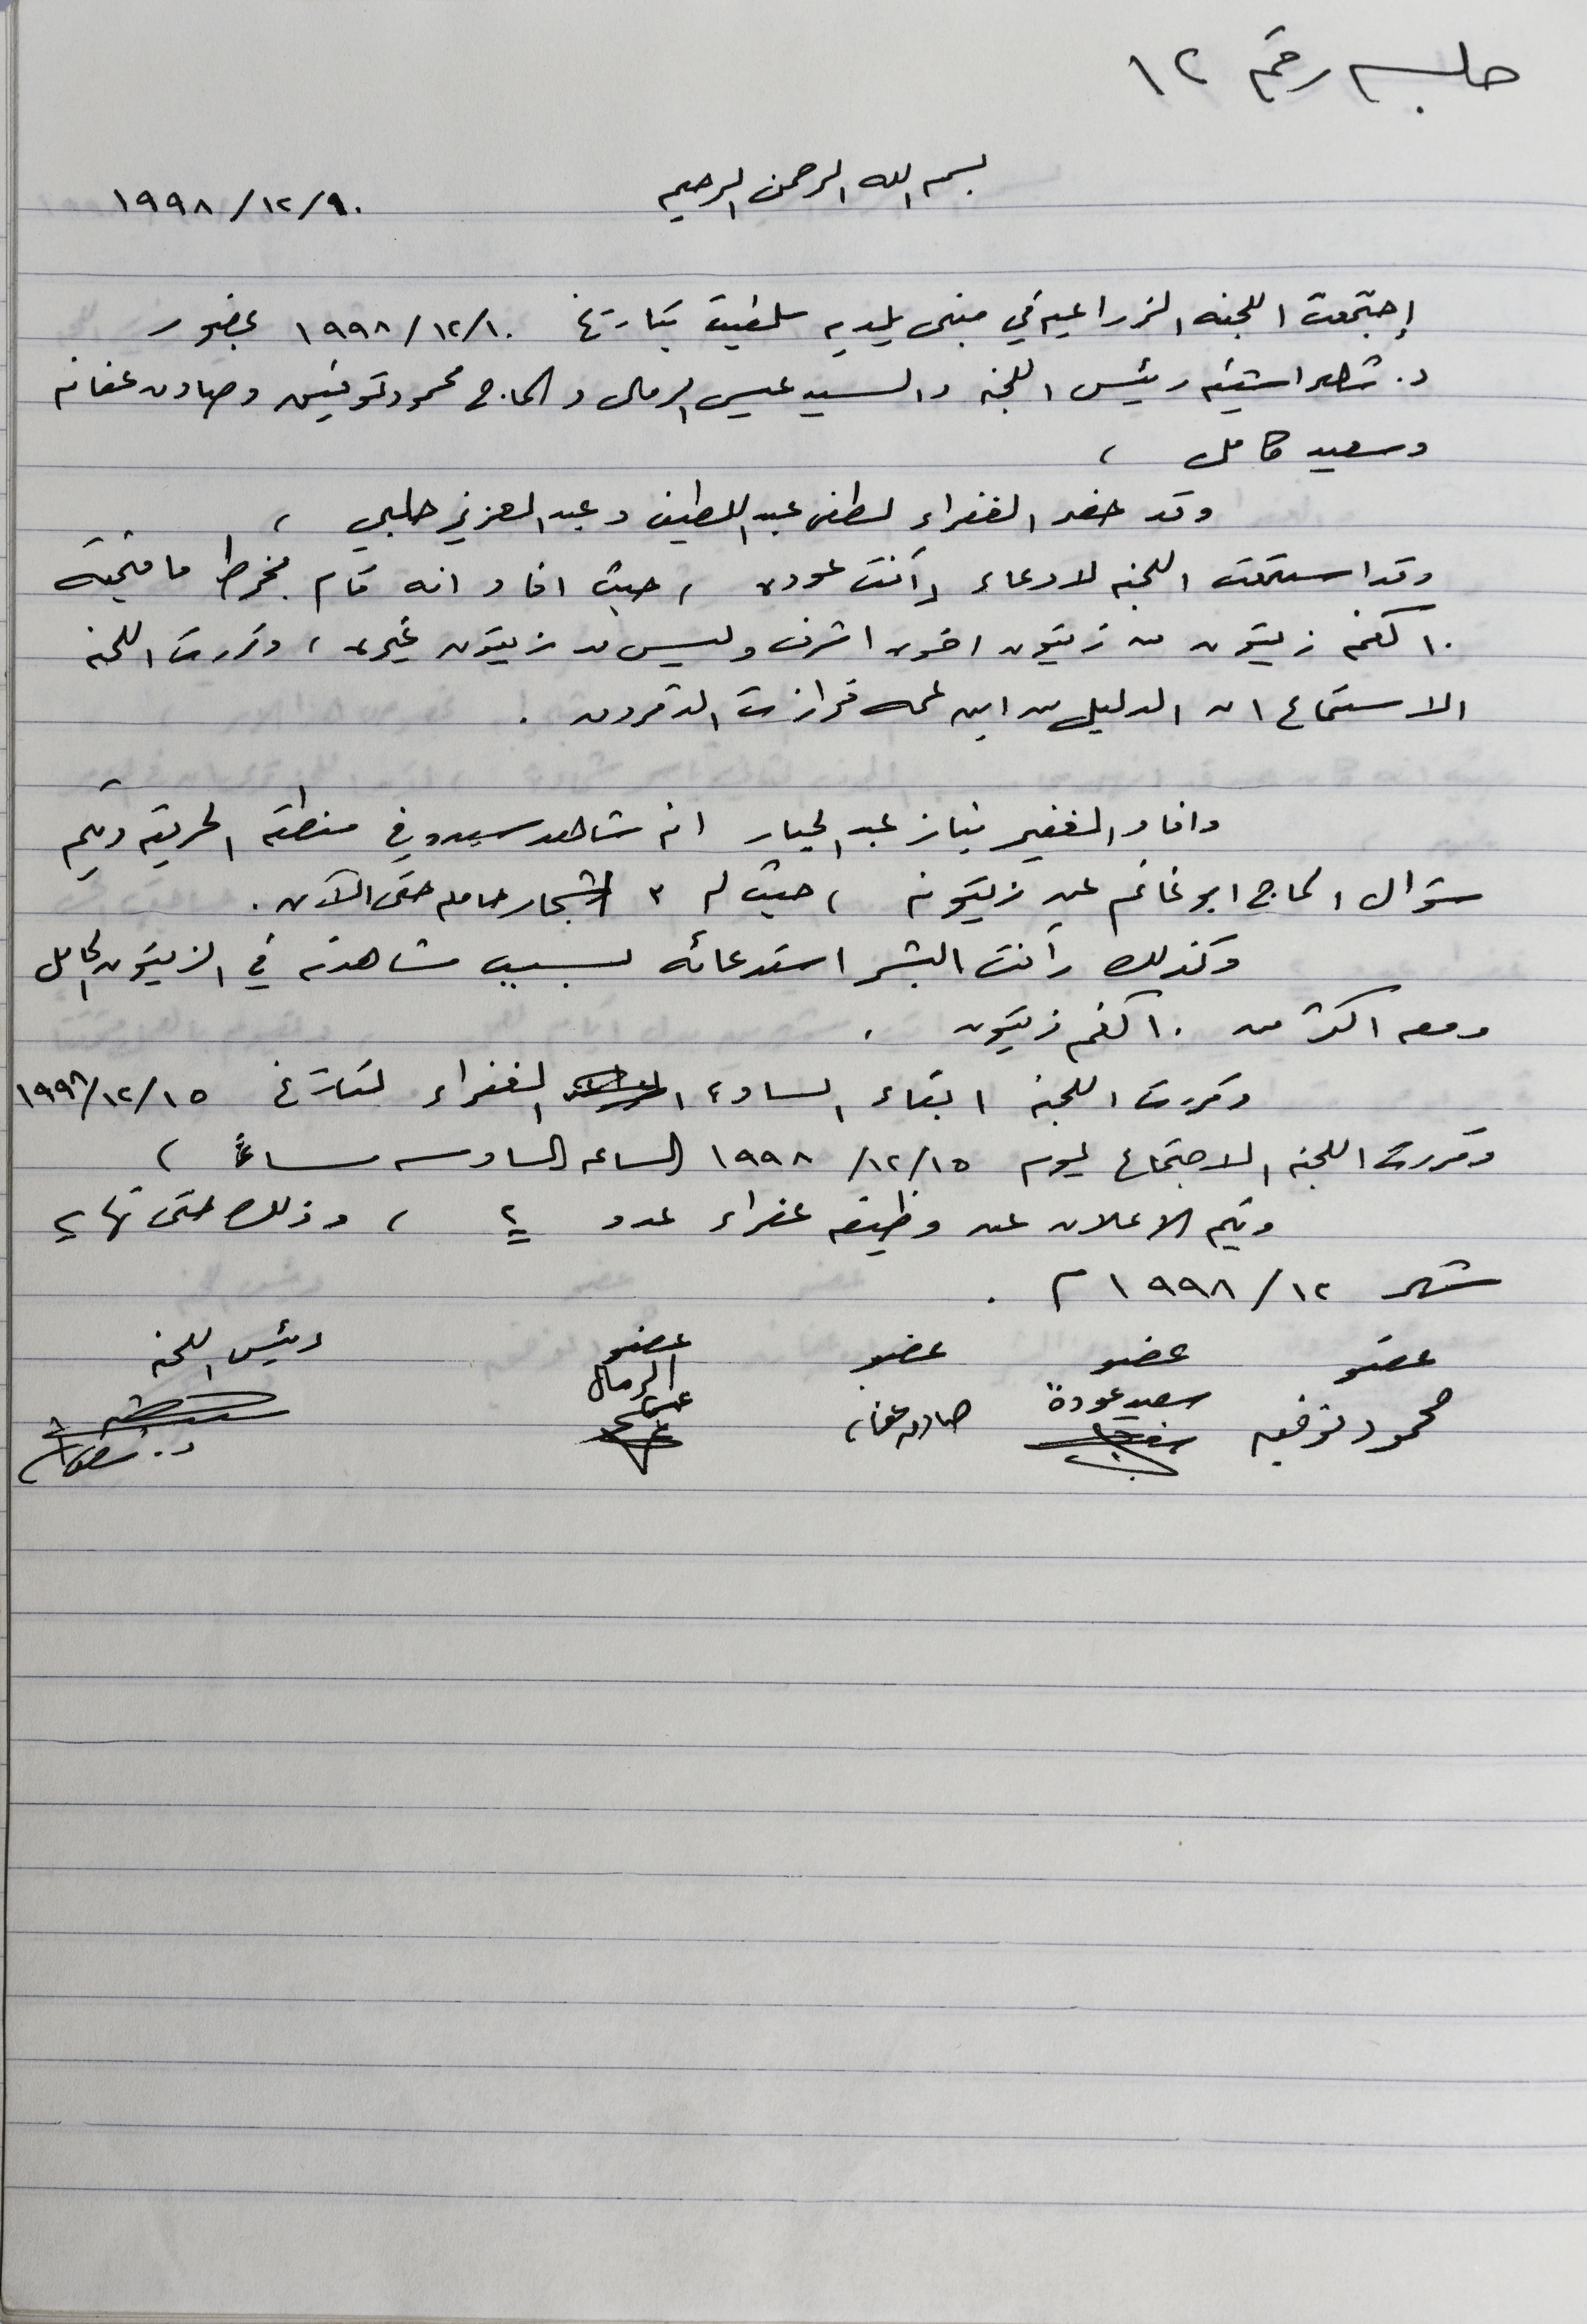 جلسه رقم ١٢
بسم الله الرحمن الرحيم
١٩٩٨/١٢/٩٠
إجتمعت اللجنه الزراعيه في مبنى بلديه سلفيت بتاريخ ١٩٩٨/١٢/١٠ بحضور
د. شاهر اشتيه رئيس اللجنه والسيد عيسى الرمال والحاج محمود توفيق وصادق عفانه
وسعيد كامل ،
وقد حضر الغفراء لطفي عبد اللطيف وعبد العزيز حلبي ،
وقد استمعت اللجنه لادعاء رأفت عوده ، حيث افاد انه قام بخرط ما قيمته
١٠ كغم زيتون من زيتون اخوه اشرف وليس من زيتون غيره ، وقررت اللجنه
الاستماع الى الدليل من ابن عمه
وافاد الغفير نياز عبد الجبار انه شاهد في منطقه الحريقه ويتم
سؤال الحاج ابو غانم عن زيتونه ، حيث له ٣ اشجار حامله حتى الآن .
وكذلك رأفت البشر استدعائه بسبب مشاهدته في الزيتون الحامل
ومعه اكثر من ١٠ كغم زيتون .
وقررت اللجنه ابقاء الساده الغفراء لتاريخ ١٩٩٨/١٢/١٥
وقررت اللجنه الاجتماع ليوم ١٩٩٨/١٢/١٥ الساعه السادسه مساءً ،
ويتم الاعلان عن وظيفه غفراء عدد ٢ ، وذلك حتى نهايه
شهر ١٩٩٨/١٢ م .
عضو عضو عضو عضو رئيس اللجنه
محمود توفيق سعيد عودة صادق عفانه الرمال عيسى د.